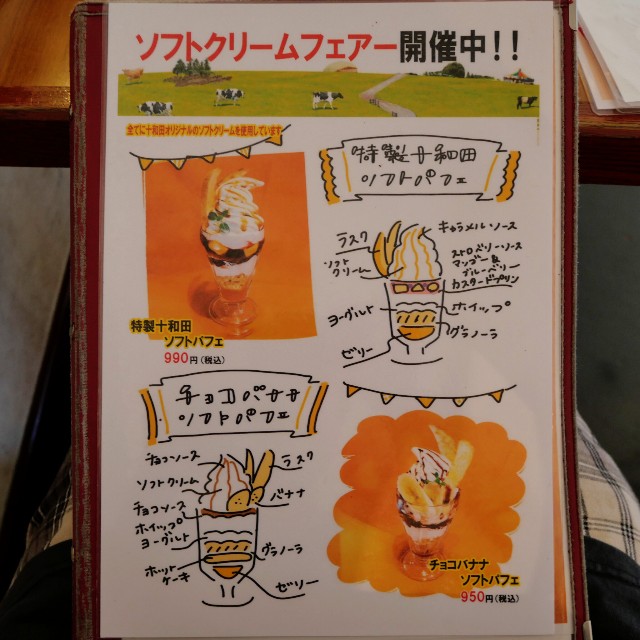 ソフトクリームフェアー開催中!!
全てに十和田オリジナルのソフトクリームを使用しています
特製十和田
ソフトパフェ
ラスク
ソフト
クリーム
ヨーグルト
ゼリー
キャラメルソース
ストロベリーソース
マンゴー&
ブルーベリー
カスタードプリン
ホイップ
グラノーラ
特製十和田
ソフトパフェ
990円(税込)
チョコバナナ
ソフトパフェ
チョコソース
ソフトクリーム
チョコソース
ホイップ
ヨーグルト
ホット
ケーキ
ラスク
バナナ
グラノーラ
ゼリー
チョコバナナ
ソフトパフェ
950円(税込)